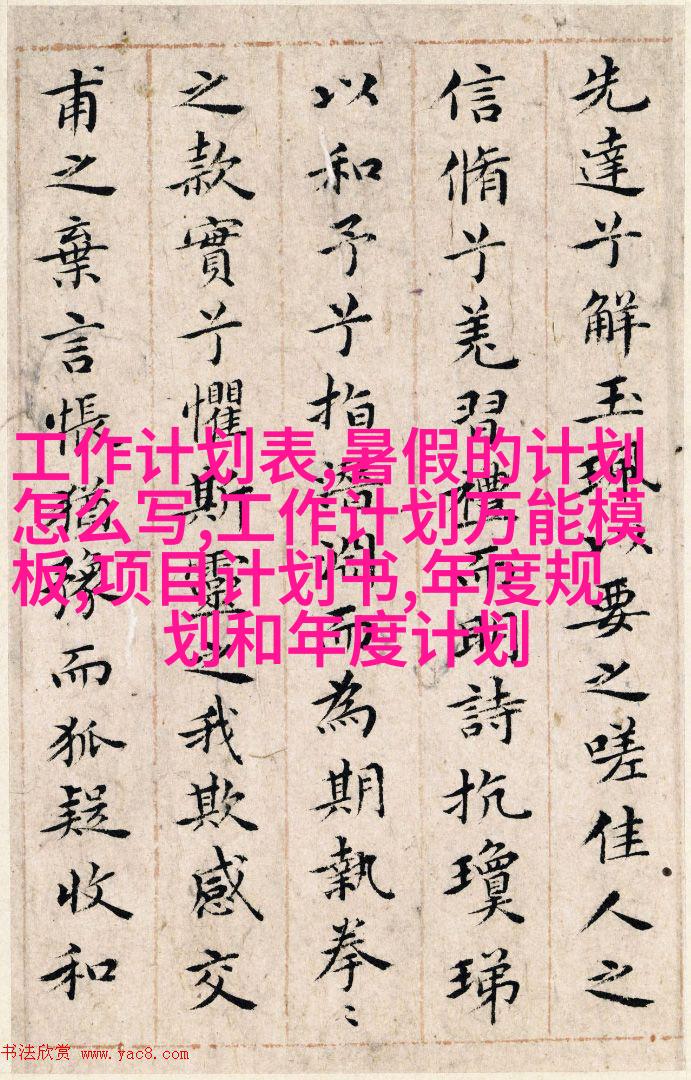 先達兮解玉珮以要之嗟佳人之
信脩兮羗習禮而明詩抗瓊珶
以和予兮指潛淵而為期執拳〻
之款實兮懼斯靈之我欺感交
甫之棄言悵猶豫而狐疑收和
工作计划表,暑假的计划
怎么写,工作计划万能模
板,项目计划书,年度规
划和年度计划
书法欣赏 www.yac8.com